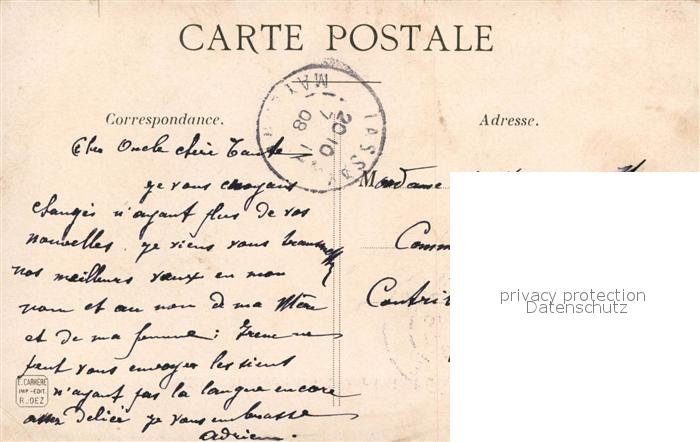 CARTE POSTALE
Correspondance.
Adresse.
MAY
20 10
7 08
Cher Oncle chère Tante
je vous croyais
changés n'ayant plus de vos
nouvelles. je viens vous transmettre
nos meilleurs vœux en mon
nom et au nom de ma Mère
et de ma femme; Irene ne
peut vous envoyer les siens
n'ayant pas la langue encore
assez deliée je vous embrasse
Adrien.
Madame
Comm
Contri
privacy protection
Datenschutz
E. CARRÈRE
IMP.-EDIT.
RODEZ